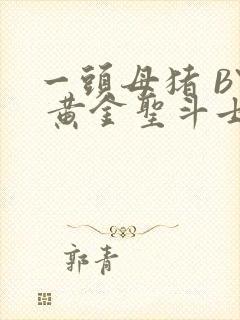 一頭母猪 BY
黄金聖斗士
郭青